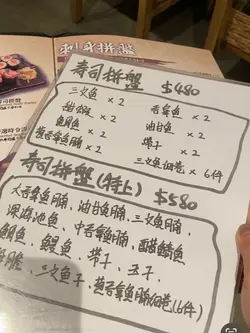 寿司拼盤 $480
三文魚 × 2
吞拿魚 × 2
甜蝦 × 2
油甘魚 × 2
鯛魚 × 2
帶子 × 2
葱吞拿魚腩 × 2
三文魚細卷 × 6件
寿司拼盤(特上) $580
大吞拿魚腩、油甘魚腩、三文魚腩、
深海池魚、中吞拿魚腩、醋鯖魚
鯛魚、鰻魚、帶子、玉子、
三文魚子、葱吞拿魚腩細卷(6件)